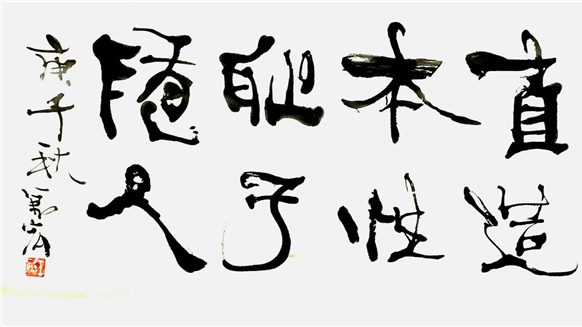 直造
本性
耻于
随人
庚子秋